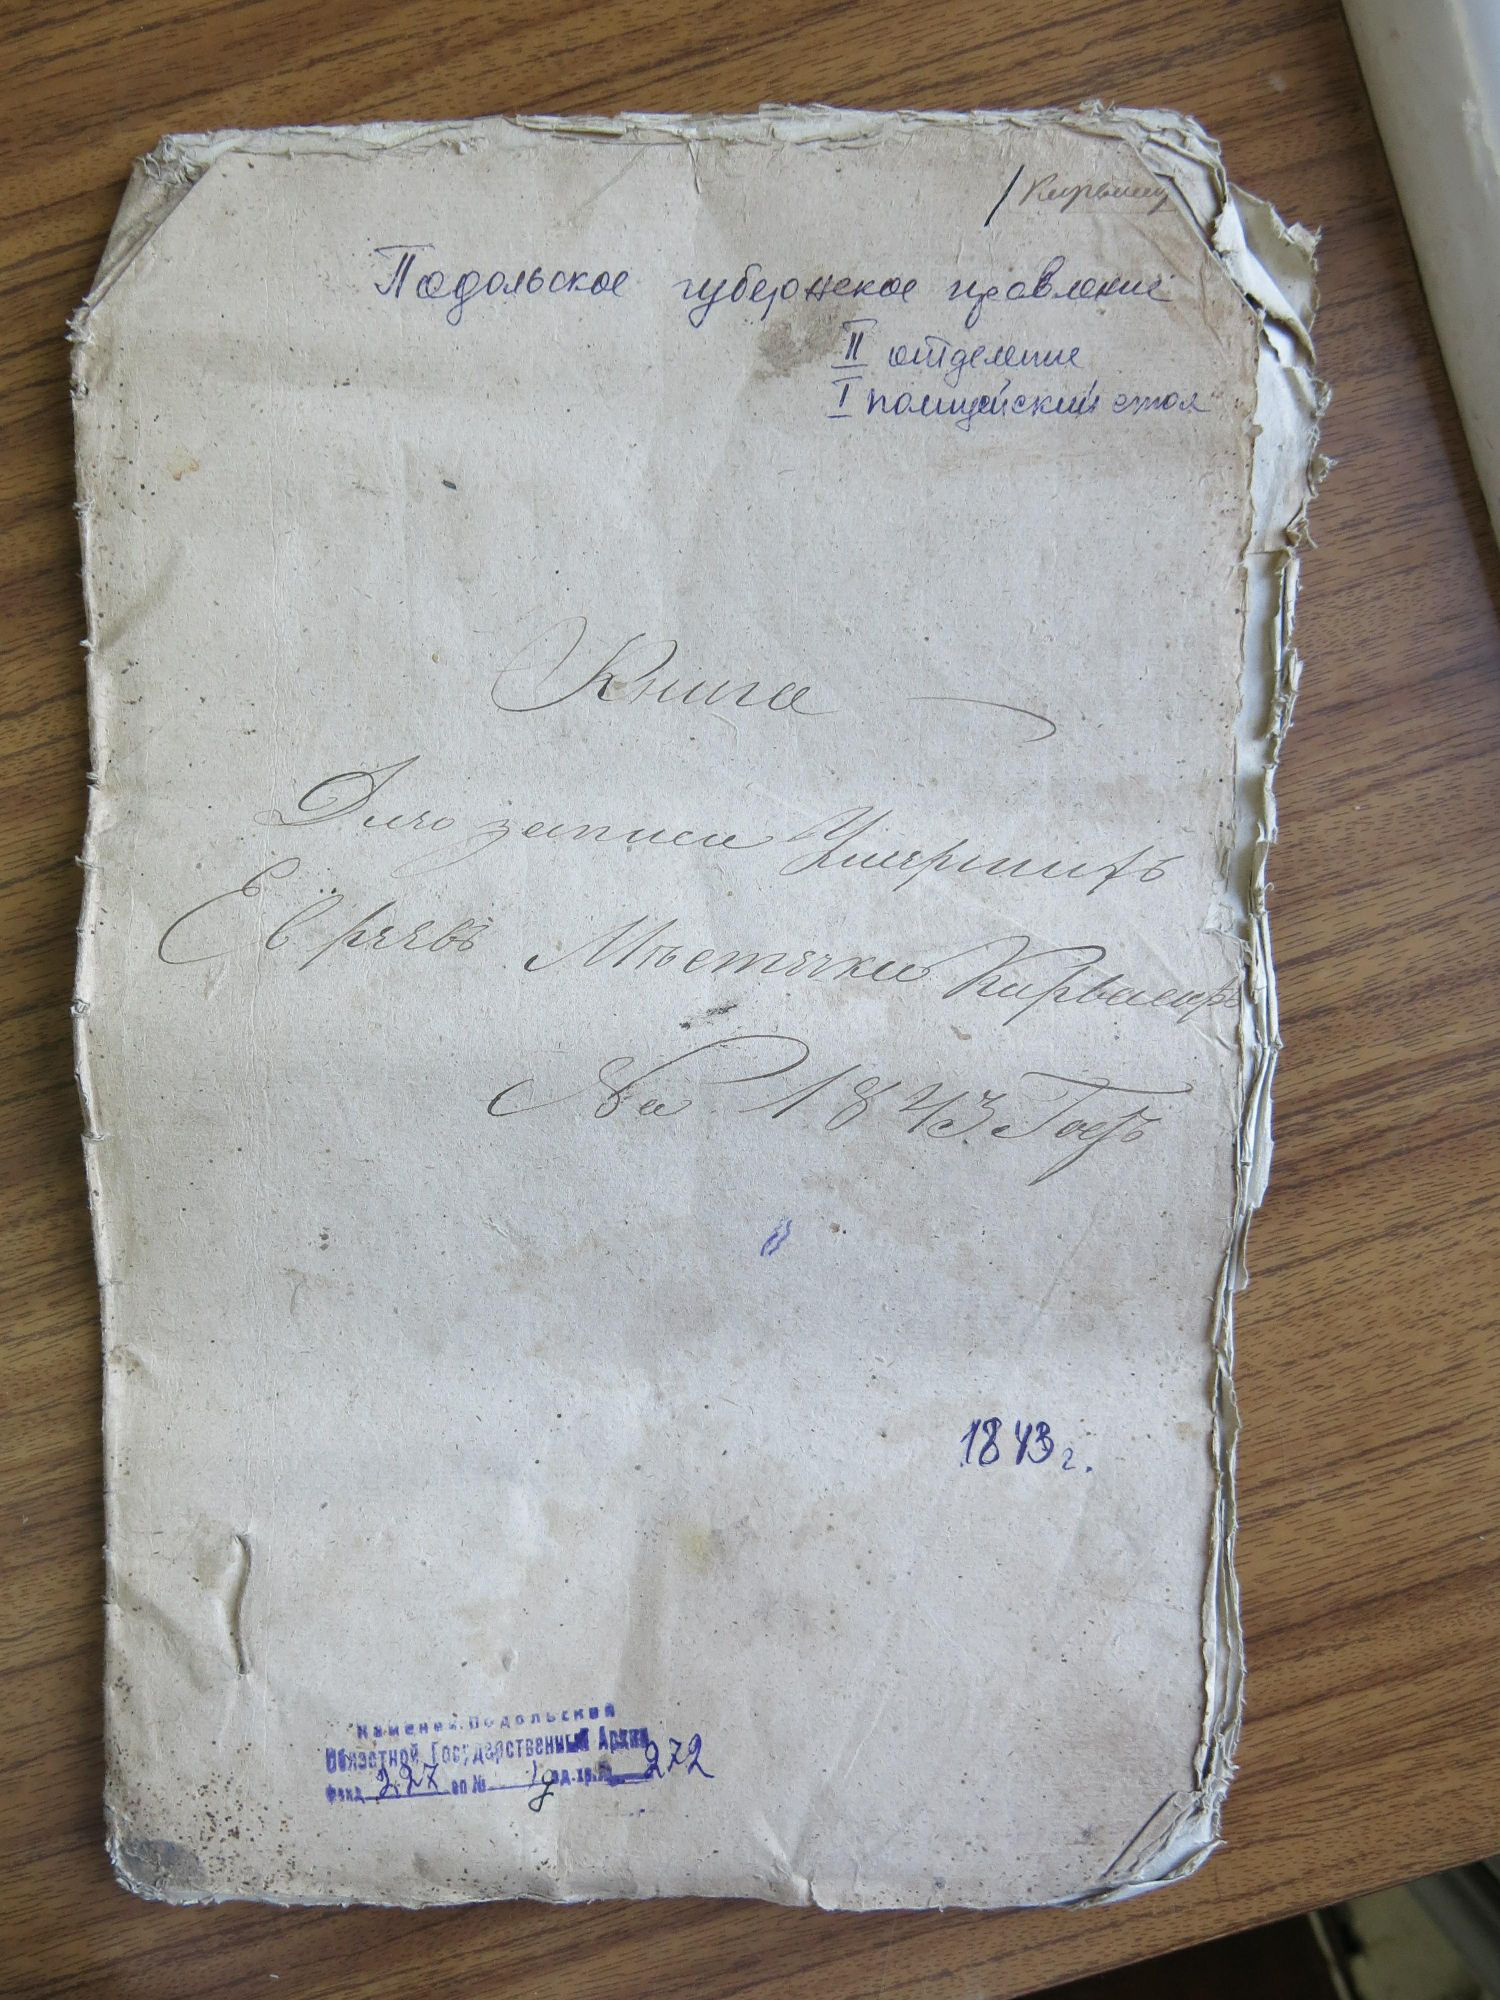 Подольское губернское правление
II отделение
I полицейский стол
Книга
Для записи Умершихъ
Евреевъ Мѣстечка
На 1843 Годъ
1843 г.
Каменец-Подольский
Областной Государственный Архив
Фонд 227 оп № 1д ед.хр.№ 272